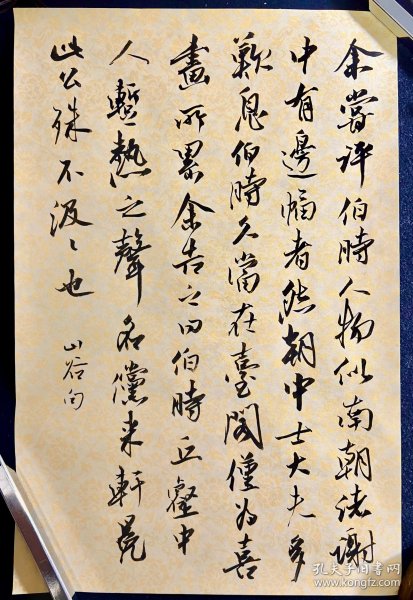 余嘗評伯時人物似南朝諸謝
中有邊幅者然朝中士大夫多
歎息伯時久當在臺閣僅為喜
畫所累余告之曰伯時丘壑中
人暫熱之聲名儻来軒冕
此公殊不汲〻也
山谷句
孔夫子旧书网